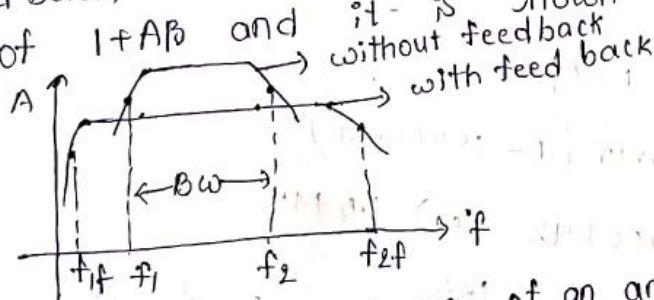 of 1+AB and it is
without feedback
with feed back
A
BW
f
f1f f1 f2 f2f
of an